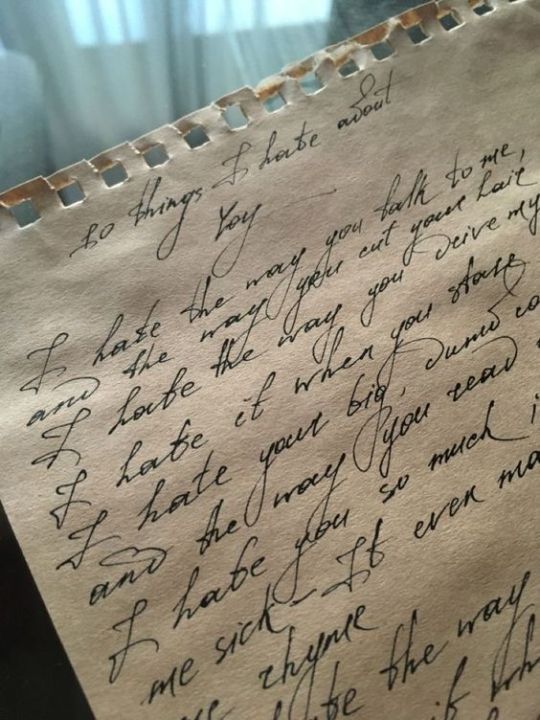 10 things I hate about
You —
I hate the way you talk to me,
and the way you cut your hair
I hate the way you drive my
I hate it when you stare
I hate your big, dumb
and the way you read
I hate you so much
me sick - It even
me rhyme
hate the way
it